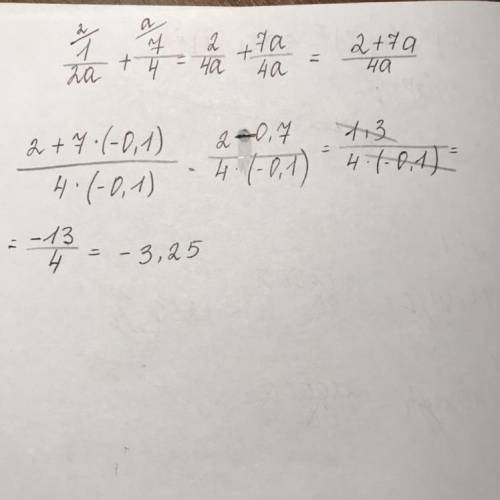 2/ a/
1/2a + 7/4 = 2/4a + 7a/4a = 2+7a/4a
2+7·(-0,1)/4·(-0,1) = 2-0,7/4·(-0,1) = 1,3/4·(-0,1) =
= -13/4 = -3,25